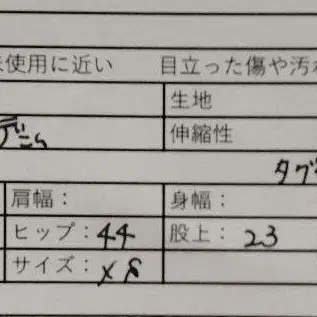 未使用に近い 目立った傷や汚れ
生地
伸縮性
タグ
肩幅： 身幅：
ヒップ：44 股上：23
サイズ：XS